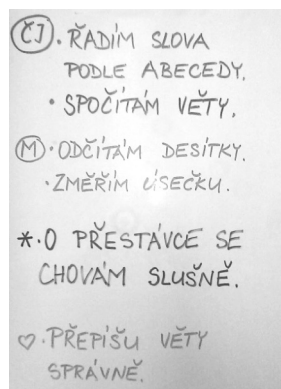 ČJ · ŘADÍM SLOVA
PODLE ABECEDY.
• SPOČÍTÁM VĚTY.
M · ODČÍTÁM DESÍTKY.
· ZMĚŘÍM ÚSEČKU.
*· O PŘESTÁVCE SE
CHOVÁM SLUŠNĚ.
♡· PŘEPÍŠU VĚTY
SPRÁVNĚ.